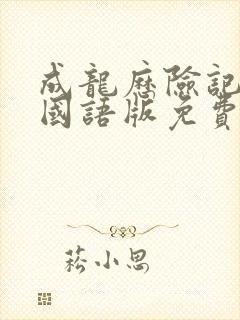 成龍歷險記
國語版免費
菘小思